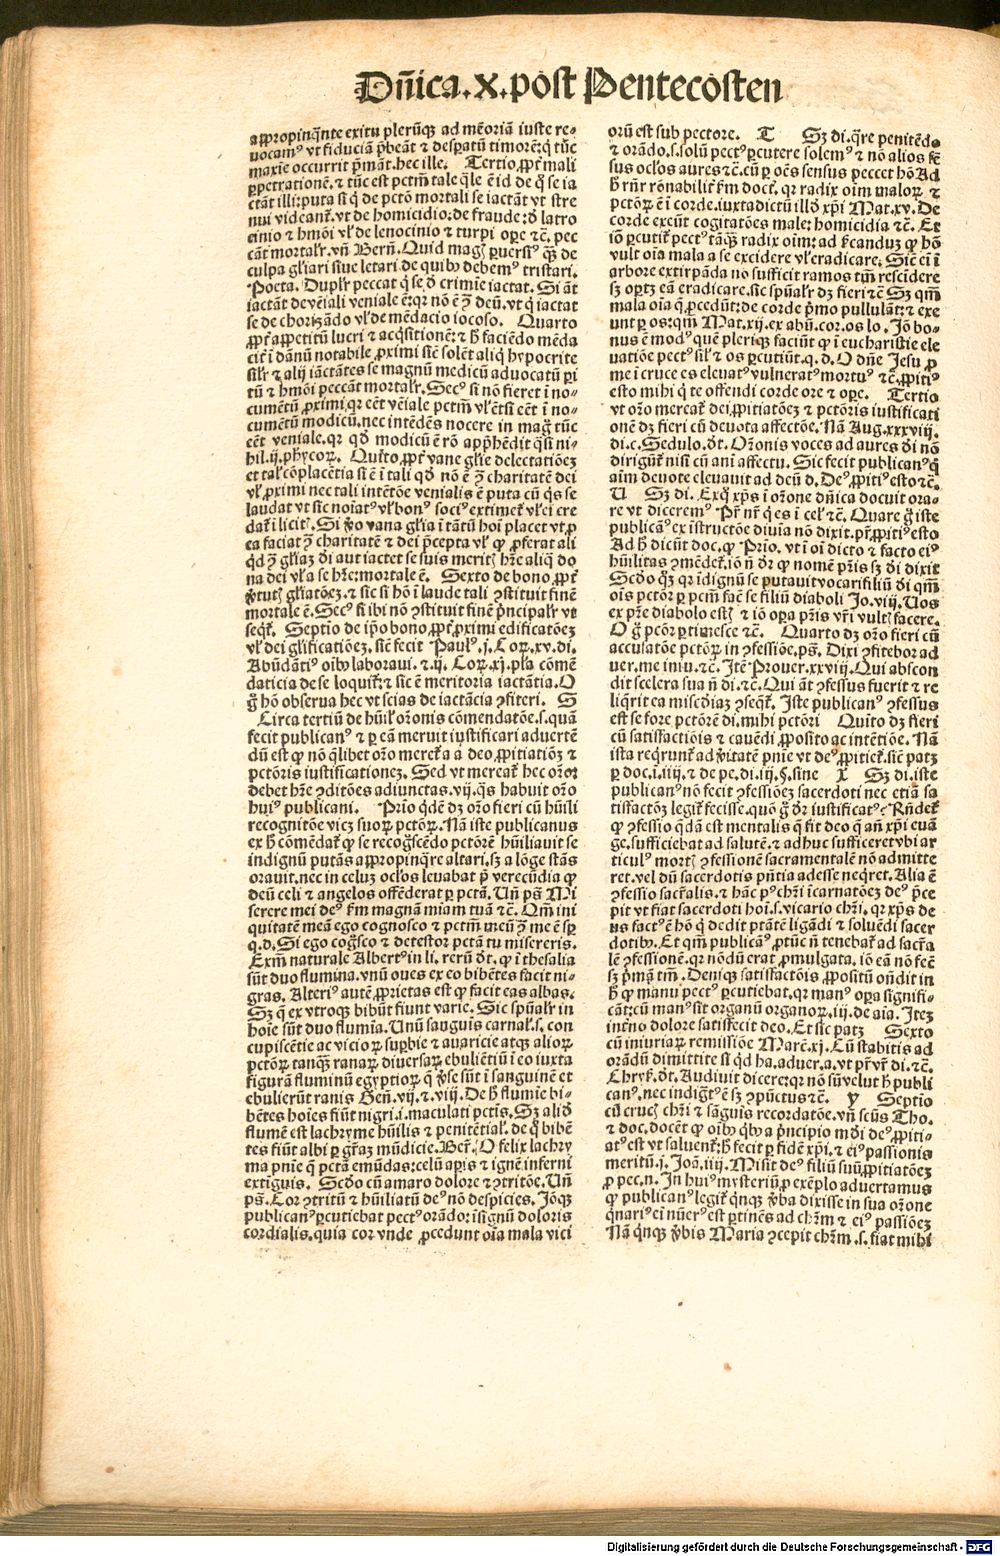 Dñica.X.post Pentecosten
appropinq̃nte exitu plerũqꝫ ad mẽoriã iuste re-
uocamꝰ vt fiduciã p̃beãt ⁊ despatũ timorẽ:q̃ tũc
maxĩe occurrit p̃mãt.hec ille. Tertio ꝓpt̃ mali
ꝑpetrationẽ.⁊ tũc est pctm̃ tale q̃le ẽ id de q̃ se ia
ctãt illi:puta si q̃ de pctõ mortali se iactãt vt stre
nui videant̃.vt de homicidio:de fraude:d̃ latro
cinio ⁊ hmõi vl̃ de lenocinio ⁊ turpi oꝑe ⁊c̃.pec
cãt mortalr̃.vñ Berñ.Quid magꝭ ꝑuersũ q̃ꝫ de
culpa gl̃iari siue letari.de quibꝰ debemꝰ tristari.
Poeta.Duplr̃ peccat q̃ se d̃ crimĩe iactat.Si ãt
iactãt de veniali veniale ẽ:qꝛ nõ ẽ ꝯ̃ deũ.vt q̃ iactat
se de chorizãdo vl̃ de mẽdacio iocoso. Quarto
ꝓpt̃ appetitũ lucri ⁊ acq̃sitionẽ:⁊ h̃ faciẽdo mẽda
cit̃ ĩ dãnũ notabile ꝓximi sic̃ solẽt aliq̃ hypocrite
sil̃r ⁊ alij iactãtes se magnũ medicũ aduocatũ ꝑi
tũ ⁊ hmõi peccãt mortalr̃.Secꝰ si nõ fieret ĩ no-
cumẽtũ ꝓximi.qꝛ eẽt vẽiale pctm̃ vl̃ etsi eẽt ĩ no-
cumẽtũ modicũ.nec intẽdẽs nocere in mag̃ tũc
eẽt veniale.qꝛ qd̃ modicũ ẽ rõ app̃hẽdit q̃si ni-
hil.ij.phycoꝝ. Quĩto ꝓpt̃ vane gl̃ie delectatiõeꝫ
et tal̃ cõplacẽtia si ẽ ĩ tali qd̃ nõ ẽ ꝯ̃ charitatẽ dei
vl̃ ꝓximi nec tali intẽtõe venialis ẽ puta cũ q̃s se
laudat vt sic noiaťꝰ vl̃ bonꝰ sociꝰ extimet̃ vl̃ ei cre
dat̃ ĩ licit̃.Si ṽo vana gl̃ia ĩ tãtũ hoĩ placet vt ꝓ
ea faciat ꝯ̃ charitatẽ ⁊ dei p̃cepta vl̃ ꝙ ꝓferat ali
qd̃ ꝯ̃ gl̃iaꝫ dĩ aut iactet se suis meritꝭ hr̃e aliq̃ do
na dei vl̃ a se hr̃e:mortale ẽ. Sexto de bono ꝓpt̃
ṽtutꝭ gl̃iatõeꝫ.⁊ sic si hõ ĩ laude tali ꝯstituit finẽ
mortale ẽ.Secꝰ si ibi nõ ꝯstituit finẽ p̃ncipalr̃ vt
seqt̃. Septio de ip̃o bono ꝓpt̃ ꝓximi edificatõeꝫ
vl̃ dei gl̃ificatiõeꝫ.sic̃ fecit Paulꝰ.j.Coꝝ.xv.di.
Abũdãtiꝰ oibꝰ laboraui.⁊.ij.Coꝝ.xj.pl̃a cõmẽ
daticia de se loquit̃:⁊ sic ẽ meritoria iactãtia.O
g̃ hõ obserua hec vt scias de iactãcia ꝯfiteri. S
Circa tertiũ de hũil̃ or̃onis cõmendatõe.s.quã
fecit publicanꝰ ⁊ ꝑ eã meruit iustificari aduertẽ
dũ est ꝙ nõ q̃libet or̃o meret̃ a deo ꝓpitiatiõꝫ ⁊
pctõris iustificationeꝫ. Sed vt mereat̃ hec or̃or
debet hr̃e ꝯditões adiunctas.vij.qs habuit or̃o
huiꝰ publicani. Prĩo q̃dẽ dꝫ or̃o fieri cũ hũili
recognitõe vicꝫ suoꝝ pctõꝝ.Nã iste publicanus
ex h̃ cõmẽdat̃ ꝙ se recog̃scẽdo pctõrẽ hũiliauit se
indignũ putãs appropinq̃re altari.sꝫ a lõge stãs
orauit.nec in celuꝫ ocl̃os leuabat p̃ verecũdia ꝙ
deũ celi ⁊ angelos offẽderat ꝑ pctã.Uñ pš Mi
serere mei deꝰ km̃ magnã miam tuã ⁊c̃.Qm̃ ini
quitatẽ meã ego cognosco ⁊ pctm̃ meũ ꝯ̃ me ẽ sꝑ
q.d.Si ego cog̃sco ⁊ detestor pctã tu misereris.
Exm̃ naturale Albertꝰ in li.rerũ dt̃.ꝙ ĩ thesalia
sũt duo flumina.vnũ oues ex eo bibẽtes facit ni-
gras. Alteriꝰ autẽ ꝓprietas est ꝙ facit eas albas.
Sꝫ q̃ ex vtroqꝫ bibũt fiunt varie.Sic spũalr̃ in
hoĩe sũt duo flumĩa.Unũ sanguis carnal.s.con
cupiscẽtie ac vicioꝝ suꝑbie ⁊ auaricie atqꝫ alioꝝ
pctõꝝ tanqꝫ̃ ranaꝝ diuersaꝝ ebuliẽtiũ ĩ eo iuxta
figurã fluminũ egyptioꝝ q̃ ṽse sũt ĩ sanguinẽ et
ebulierũt ranis Geñ.vij.⁊.viij.De h̃ flumĩe bi-
bẽtes hoĩes fiũt nigri.i.maculati pctis.Sꝫ aliď
flumẽ est lachryme hũilis ⁊ penitẽtial̃.de q̃ bibẽ
tes fiũt albi ꝑ gr̃aꝫ mũdicie.Ber̃.O felix lachry
ma pnĩe q̃ pctã emũdas:celũ aꝑis ⁊ ignẽ inferni
extĩguis. Scđo cũ amaro dolore ⁊ ꝯtritõe.Uñ
pš.Cor ꝯtritũ ⁊ hũiliatũ deꝰ nõ despicies.Iõqꝫ
publicanꝰ ꝑcutiebat pectꝰ orãdo:ĩsignũ doloris
cordialis.quia cor vnde ꝓcedunt oĩa mala vici
orũ est sub pectore. T Sꝫ di.q̃re penitẽdo
⁊ orãdo.s.solũ pectꝰ ꝑcutere solemꝰ ⁊ nõ alios sẽ
sus ocl̃os aures ⁊c̃.cũ ꝑ oẽs sensus peccet hõ Ad
h̃ rñr rõnabilit̃ km̃ doct̃.qꝛ radix oĩm maloꝝ ⁊
pctõꝝ ẽ ĩ corde.iuxta dictũ illď xp̃i Mat.xv.De
corde exeũt cogitatões male:homicidia ⁊c̃.Et
iõ ꝑcutit̃ pectꝰ tãqꝫ̃ radix oĩm:ad p̃canduꝫ ꝙ hõ
vult oĩa mala a se excidere vl̃ eradicare.Sic̃ eĩ ĩ
arbore extirpãda nõ sufficit ramos tm̃ rescĩdere
sꝫ oꝑtꝫ eã eradicare.sic spũalr̃ dꝫ fieri ⁊c̃ Sꝫ qm̃
mala oĩa q̃ ꝓcedũt:de corde p̃mo pullulãt:⁊ exe
unt ꝑ os:qm̃ Mat.xij.ex abũ.cor.os lo.Iõ bo-
nus ẽ modꝰ quẽ pleriqꝫ faciũt ꝙ ĩ eucharistie ele
uatiõe pectꝰ sil̃ ⁊ os ꝑcutiũt.q.d.O dñe Jesu ꝓ
me ĩ cruce es eleuatꝰ vulneratꝰ mortuꝰ ⁊c̃.ꝓpitiꝰ
esto mihi q̃ te offendi corde ore ⁊ oꝑe. Tertio
vt or̃o mereat̃ dei ꝓpitiatõeꝫ ⁊ pctõris iustificati
onẽ dꝫ fieri cũ deuota affectõe.Nã Aug.xxxviij.
di.c.Sedulo.dt̃.Or̃onis voces ad aures dĩ nõ
dirigũt̃ nisi cũ anĩ affectu.Sic fecit publicanꝰ q̃
aĩm deuote eleuauit ad deũ d.Deꝰ ꝓpitiꝰ esto ⁊c̃.
U Sꝫ di.Exq̃ xp̃s ĩ or̃one dñica docuit ora-
re vt diceremꝰ Pr̃ nr̃ q̃ es ĩ cel̃ ⁊c̃. Quare g̃ iste
publicanꝰ ex ĩstructõe diuĩa nõ dixit.pr̃.ꝓpitiꝰ esto
Ad h̃ dicũt doc.ꝙ Prĩo.vt ĩ oĩ dicto ⁊ facto eiꝰ
hũilitas ꝯmẽdet̃.iõ ñ dr̃ ꝙ nomẽ pr̃is sꝫ dĩ dixit
Scđo q̃ꝫ qꝛ ĩdignũ se putauit vocari filiũ dĩ qm̃
oĩs pctõꝛ ꝑ pctm̃ facẽ se filiũ diaboli Jo.viij.Uos
ex pr̃e diabolo estꝭ ⁊ iõ oꝑa pr̃is vr̃i vultꝭ facere.
O g̃ pcõꝛ ꝑtimesce ⁊c̃. Quarto dꝫ or̃o fieri cũ
accusatõe pctõꝝ in ꝯfessiõe.pš. Dixi ꝯfitebor ad
uer.me iniu.⁊c̃.Itẽ Prouer.xxviij.Qui abscon
dit scelera sua ñ di.⁊c̃.Qui ãt ꝯfessus fuerit ⁊ re
liq̃rit ea misc̃diaꝫ ꝯseqt̃. Iste publicanꝰ ꝯfessus
est se fore pctõrẽ di.mihi pctõri Quĩto dꝫ fieri
cũ satisfactiõis ⁊ cauẽdi ꝓposito ac intẽtiõe. Nã
ista reqrunt̃ ad ṽitatẽ pnĩe vt deꝰ ꝓpitiet̃.sic̃ patꝫ
ꝑ doc.i.iiij.⁊ de pe.di.iij.§.sine X Sꝫ di.iste
publicanꝰ nõ fecit ꝯfessiõeꝫ sacerdoti nec etiã sa
tisfactõꝫ legit̃ fecisse.quõ g̃ dr̃ iustificatꝰ? Rñdet̃
ꝙ ꝯfessio q̃dã est mentalis q̃ fit deo q̃ añ xp̃i euã
ge.sufficiebat ad salutẽ.⁊ adhuc sufficeret vbi ar
ticulꝰ mortꝭ ꝯfessionẽ sacramentalẽ nõ admitte
ret.vel dũ sacerdotis pñtia adesse neqret.Alia ẽ
ꝯfessio sacr̃alis.⁊ hãc pꝰ chr̃i ĩcarnatõeꝫ deꝰ p̃ce
pit vt fiat sacerdoti hoĩ.s.vicario chr̃i.qꝛ xp̃s de
us factꝰ ẽ hõ q̃ dedit ptãtẽ ligãdi ⁊ soluẽdi sacer
dotibꝰ.Et qm̃ publicãꝰ ꝓ tũc ñ tenebat̃ ad sacr̃a
lẽ ꝯfessionẽ.qꝛ nõdũ erat ꝓmulgata.iõ eã nõ fec̃
sꝫ p̃mã tm̃.Deniqꝫ satisfactõis ꝓpositũ oñdit in
h̃ ꝙ manu pectꝰ ꝑcutiebat.qꝛ manꝰ oꝑa signifi-
cãt:cũ manꝰ sit organũ organoꝝ.iij.de aĩa.Iteꝫ
intr̃no dolore satisfecit deo.Et sic patꝫ Sexto
cũ iniuriaꝝ remissiõe Marc̃.xj.Cũ stabitis ad
orãdũ dimittite si qd̃ ha.aduer.a.vt pr̃ vr̃ di.⁊c̃.
Chrys.dt̃.Audiuit dicere:qꝛ nõ sũ velut h̃ publi
canꝰ.nec indigt̃ꝰ ẽ sꝫ ꝯpũctus ⁊c̃. y Septio
cũ crucꝭ chr̃i ⁊ sãguis recordatõe.vñ scũs Tho.
⁊ doc.docẽt ꝙ oibꝰ q̃bꝰ a p̃ncipio mũdi deꝰ ꝓpiti-
atꝰ est vt saluent̃:h̃ fecit ꝑ fidẽ xp̃i.⁊ eiꝰ passionis
meritũ.j.Joã.iiij.Misit deꝰ filiũ suũ ꝓpitiatõeꝫ
ꝓ pec.n.In huiꝰ mysteriũ ꝓ exẽplo aduertamus
ꝙ publicanꝰ legit̃ q̃nqꝫ ṽba dixisse in sua or̃one
q̃nariꝰ eĩ nũerꝰ est ꝑtinẽs ad chr̃m ⁊ eiꝰ passiõeꝫ
Nã q̃nqꝫ ṽbis Maria ꝯcepit chr̃m.s.fiat mihi
Digitalisierung gefördert durch die Deutsche Forschungsgemeinschaft - DFG